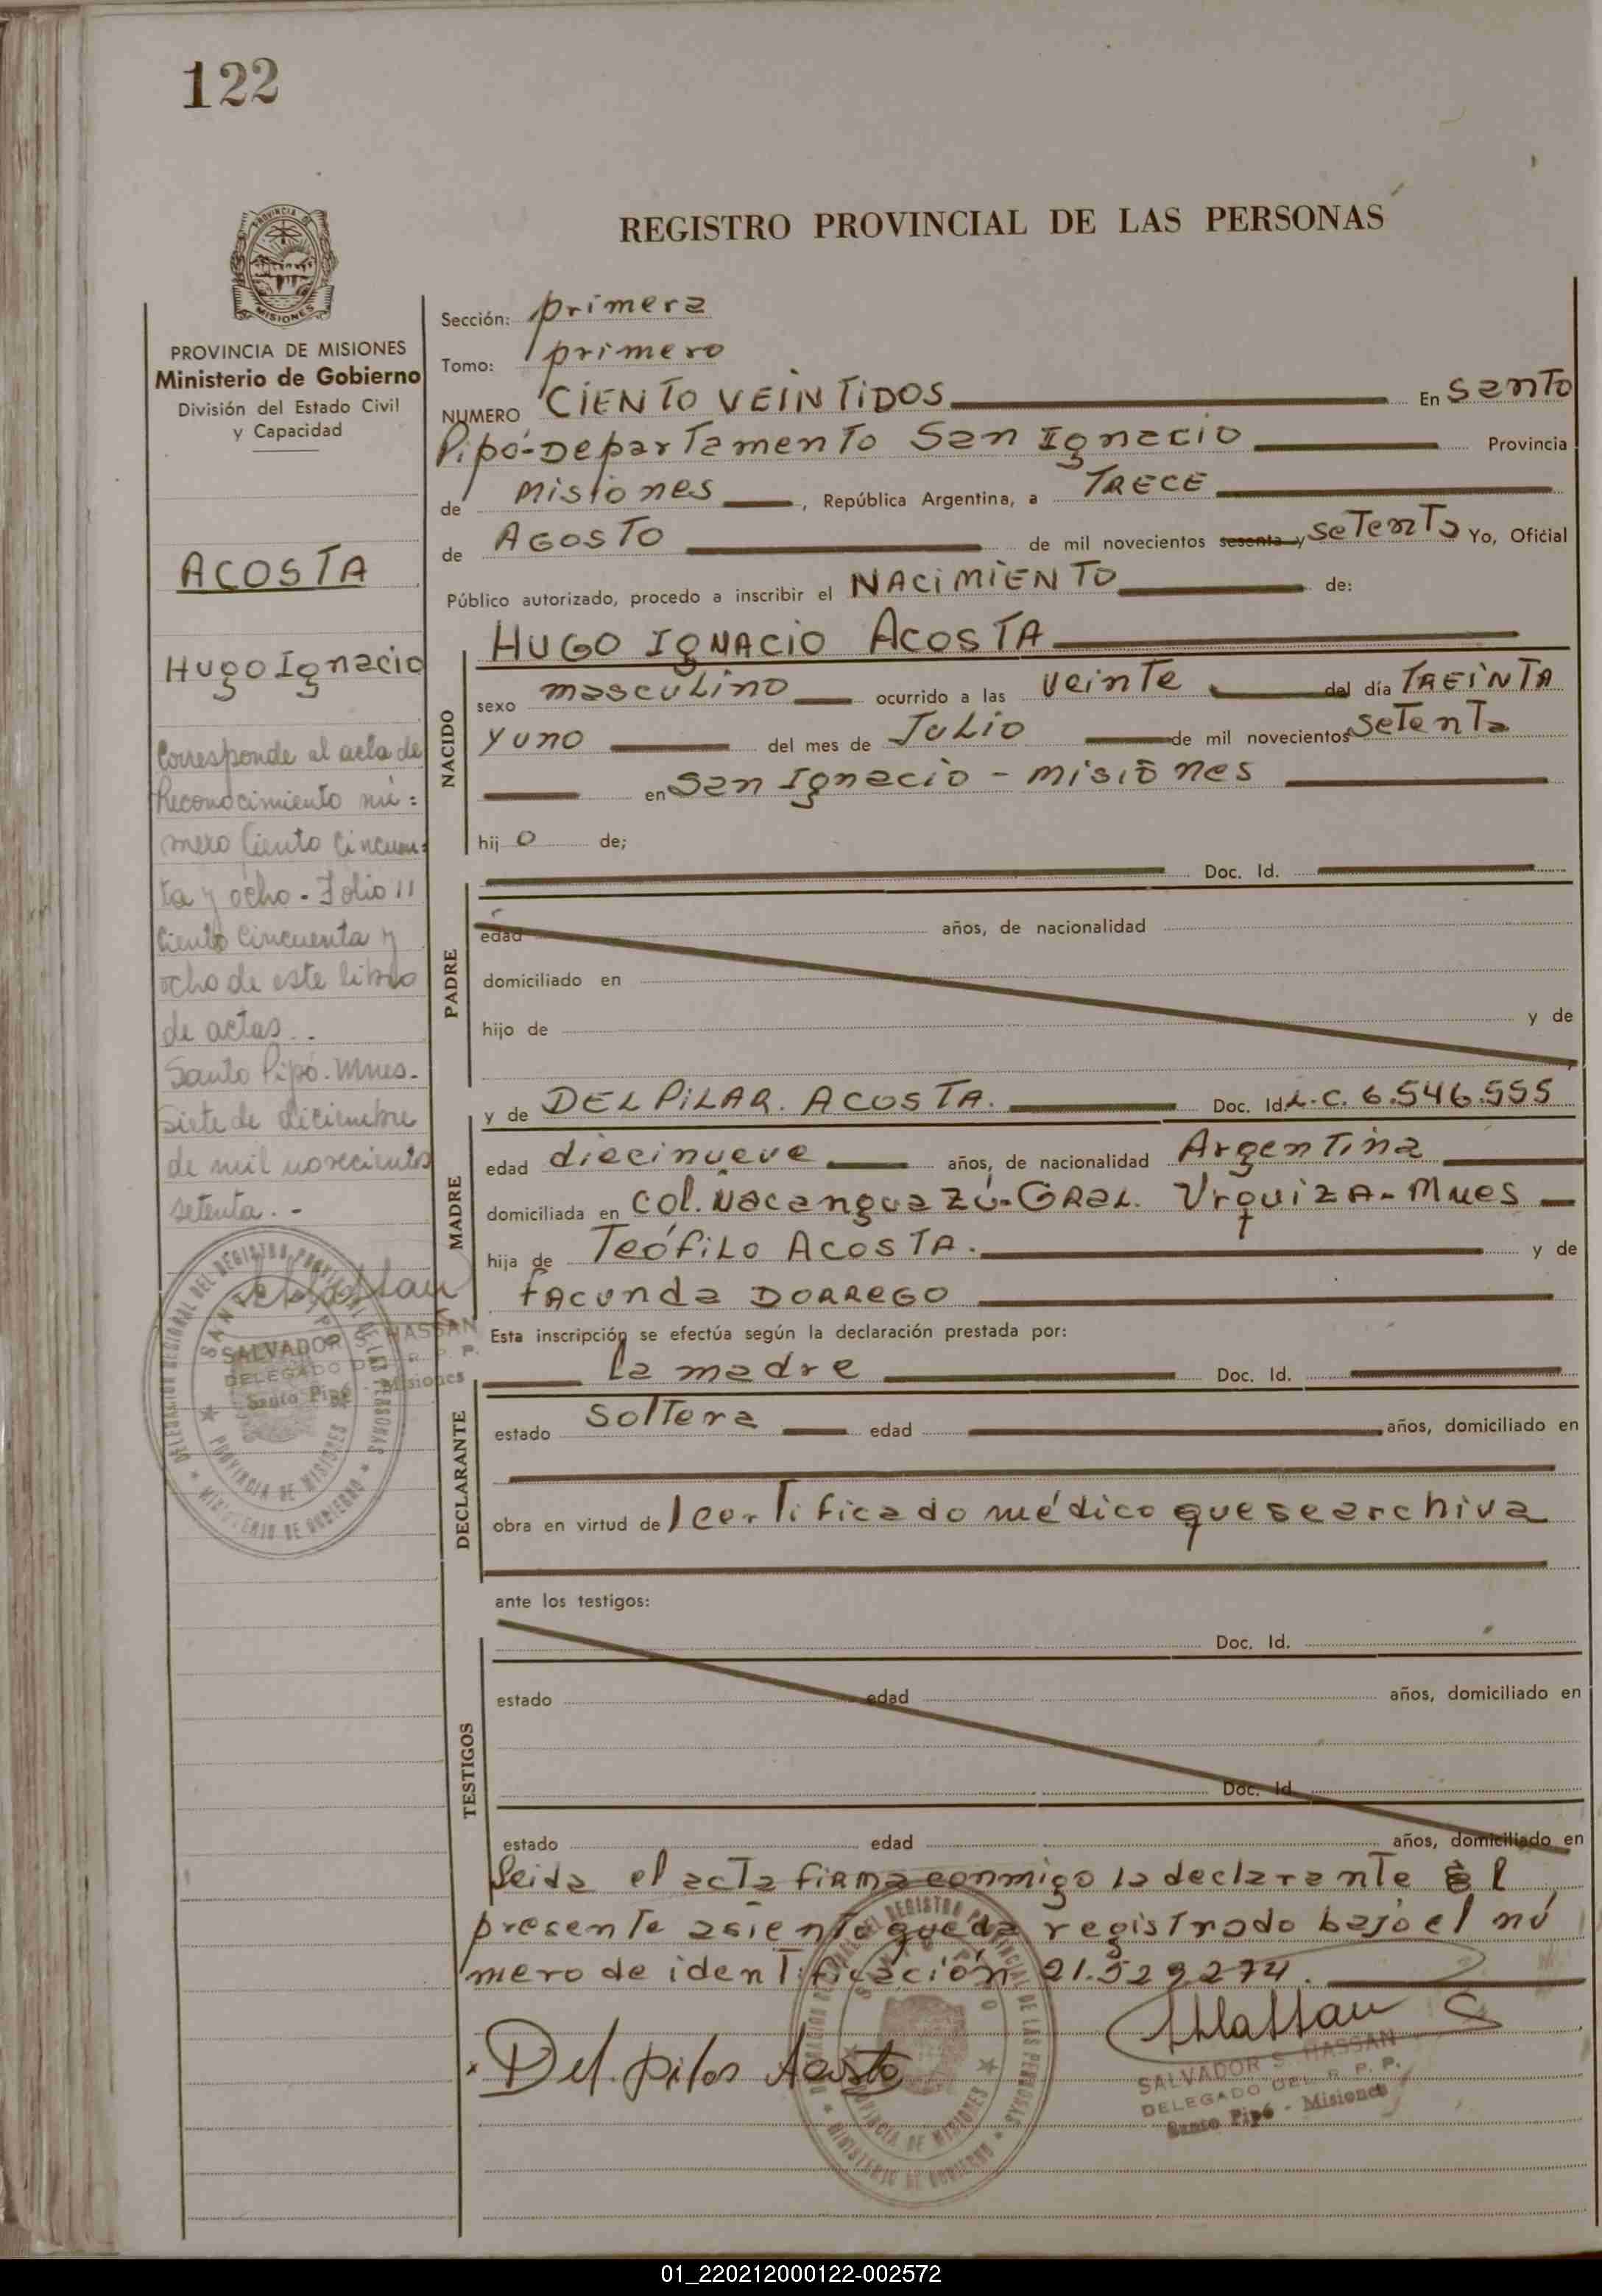 122
REGISTRO PROVINCIAL DE LAS PERSONAS
PROVINCIA DE
MISIONES
PROVINCIA DE MISIONES
Ministerio de Gobierno
División del Estado Civil
y Capacidad
ACOSTA
Hugo Ignacio
Corresponde al acta de
Reconocimiento nú:
mero Ciento Cincuen:
ta y ocho - Folio 11
Ciento Cincuenta y
ocho de este libro
de actas..
Santo Pipó. Mnes.
Siete de diciembre
de mil novecientos
setenta. -
SALVADOR S. HASSAN
DELEGADO DEL R. P. P.
Santo Pipó - Misiones
DELEGACION REGIONAL DEL REGISTRO PROVINCIAL DE LAS PERSONAS
PROVINCIA DE MISIONES
MINISTERIO DE GOBIERNO
Sección: primera
Tomo: primero
NUMERO CIENTO VEINTIDOS En Santo
Pipó-Departamento San Ignacio Provincia
de Misiones, República Argentina, a TRECE
de AGOSTO de mil novecientos sesenta y setenta Yo, Oficial
Público autorizado, procedo a inscribir el NACIMIENTO de:
NACIDO
HUGO IGNACIO ACOSTA
sexo masculino ocurrido a las veinte del día TREINTA
y uno del mes de Julio de mil novecientos setenta
en San Ignacio - misiones
hijo de;
Doc. Id.
PADRE
edad años, de nacionalidad
domiciliado en
hijo de y de
MADRE
y de DEL PILAR. ACOSTA. Doc. Id. L.C. 6.546.555
edad diecinueve años, de nacionalidad Argentina
domiciliada en col. Ñacanguazú-GRAL. Urquiza-Mnes
hija de Teófilo ACOSTA. y de
facunda DORREGO
Esta inscripción se efectúa según la declaración prestada por:
DECLARANTE
la madre Doc. Id.
estado soltera edad años, domiciliado en
obra en virtud de certificado médico que se archiva
ante los testigos:
TESTIGOS
Doc. Id.
estado edad años, domiciliado en
Doc. Id.
estado edad años, domiciliado en
Leida el acta firma conmigo la declarante El
presente asiento queda registrado bajo el nú
mero de identificación 21.529.274.
Del. pilar Acosta
SALVADOR S. HASSAN
DELEGADO DEL R. P. P.
Santo Pipó - Misiones
REGISTRO PROVINCIAL DE LAS PERSONAS
PROVINCIA DE MISIONES
MINISTERIO DE GOBIERNO
01_220212000122-002572